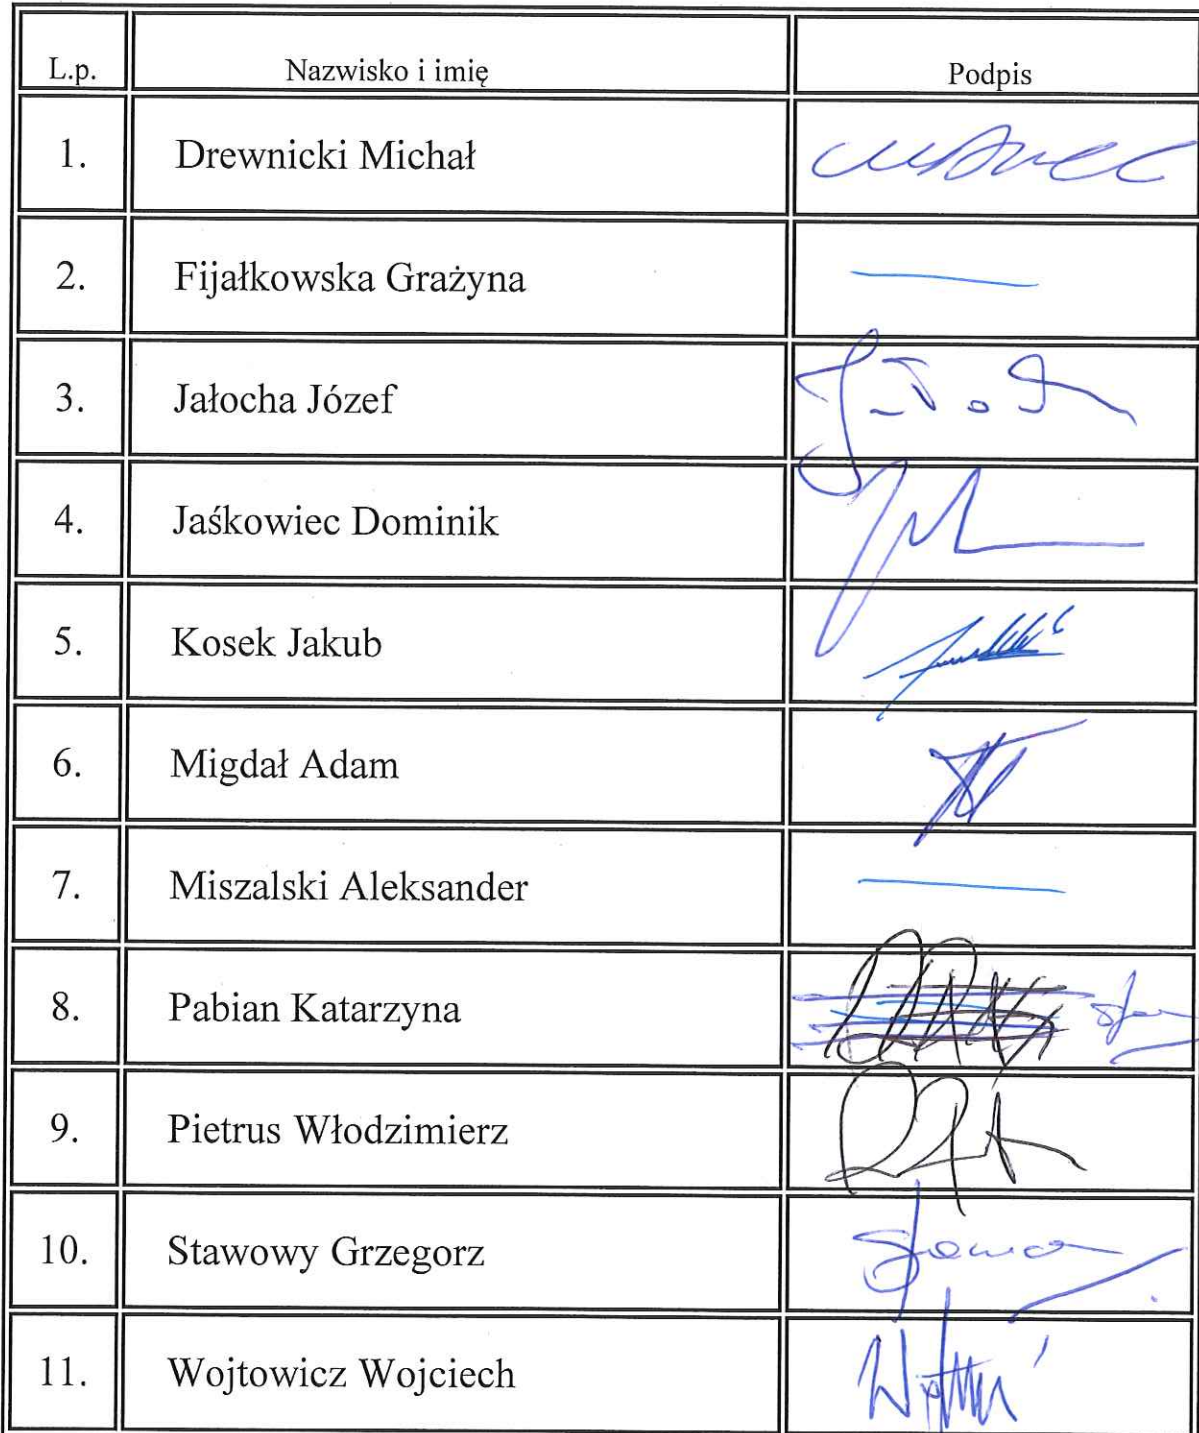 L.p. Nazwisko i imię Podpis
1. Drewnicki Michał
2. Fijałkowska Grażyna
3. Jałocha Józef
4. Jaśkowiec Dominik
5. Kosek Jakub
6. Migdał Adam
7. Miszalski Aleksander
8. Pabian Katarzyna
9. Pietrus Włodzimierz
10. Stawowy Grzegorz
11. Wojtowicz Wojciech